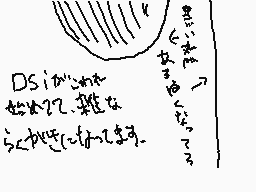 DSiがこわれ
始めてて、雑な
らくがきになってます。
黒い所が
ある白くなってる